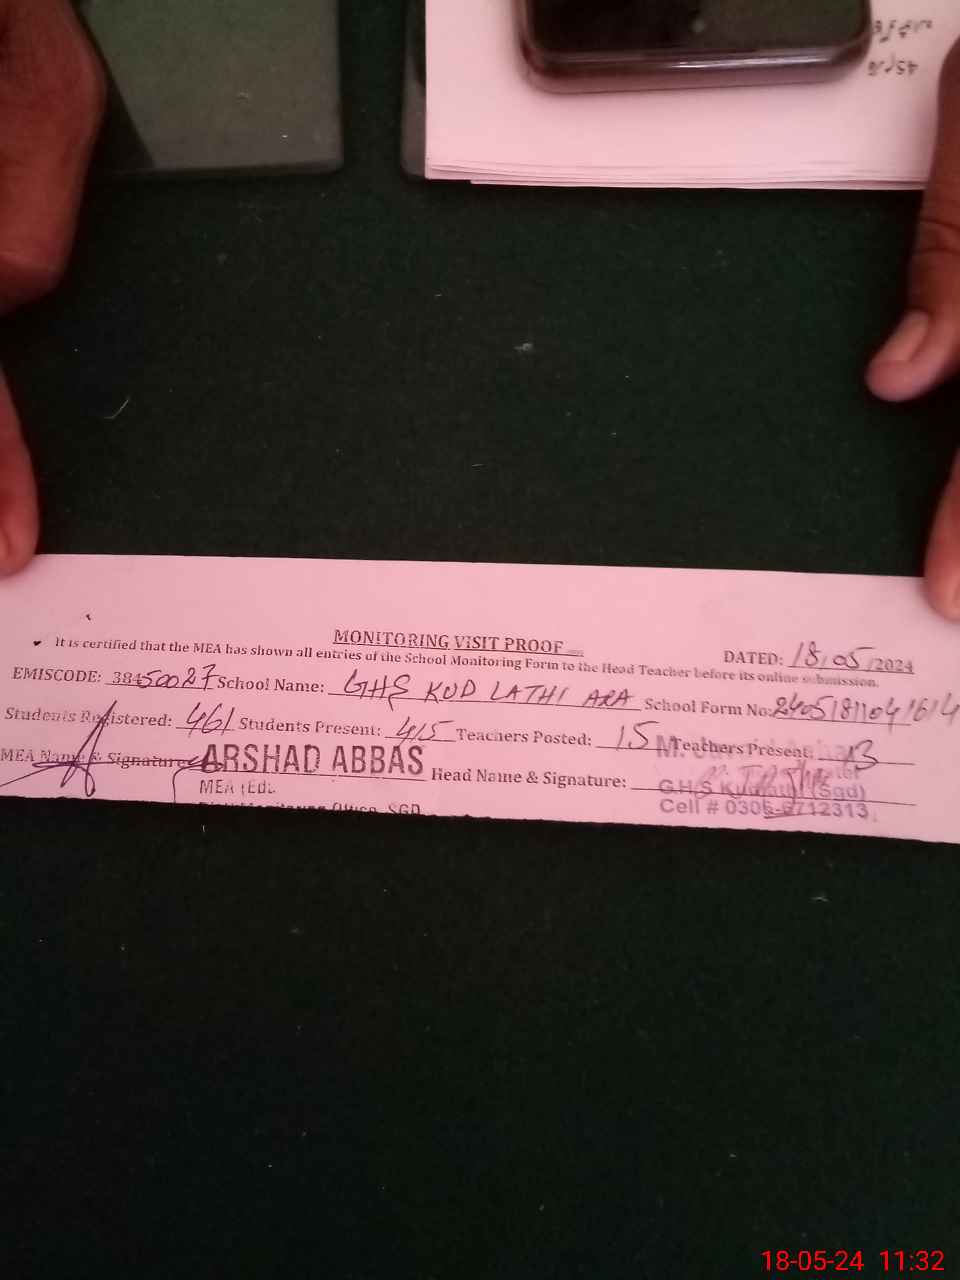 MONITORING VISIT PROOF
DATED: 18,05/2024
It is certified that the MEA has shown all entries of the School Monitoring Form to the Head Teacher before its online submission.
EMISCODE: 38450027 School Name: GHS KUD LATHI ARA School Form No: 24051811041614
Students Registered: 461 Students Present: 415 Teachers Posted: 15 Teachers Present: 13
MEA Name & Signature: ARSHAD ABBAS Head Name & Signature:
MEA (Edu
G.H.S (Sgd)
Office, SGD
Cell # 0306-6712313
18-05-24 11:32